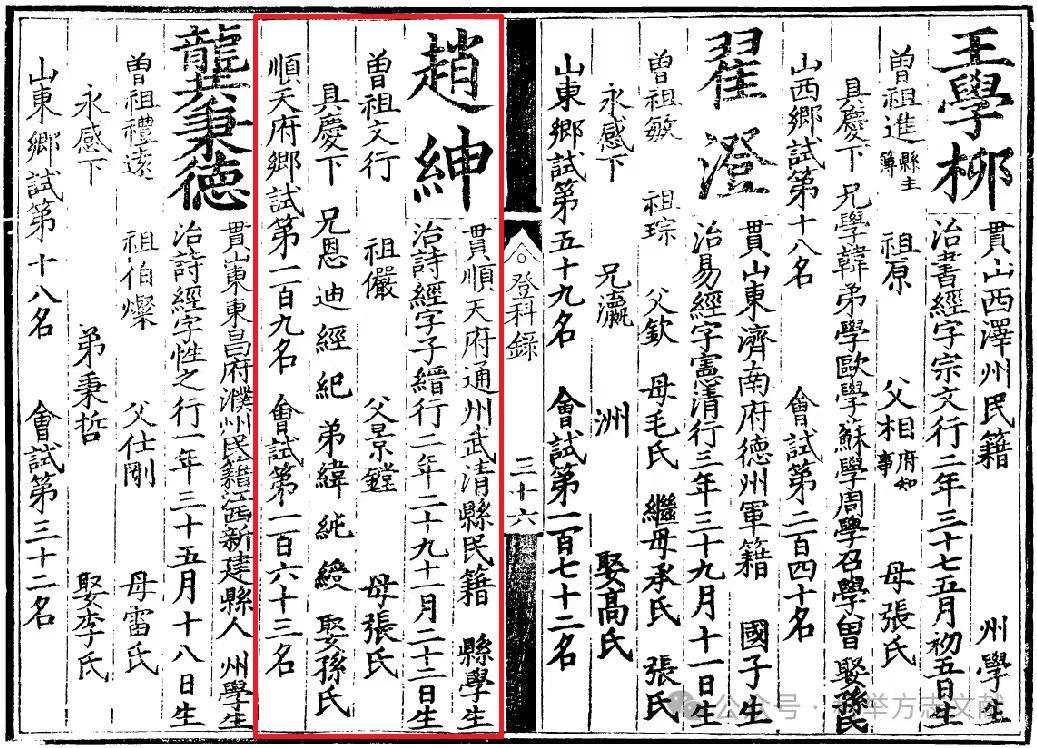 王學柳
貫山西澤州民籍 州學生
治書經字宗文行二年三十七五月初五日生
曾祖進縣主簿 祖原 父相府知事 母張氏
具慶下 兄學韓 弟學歐 學蘇 學周 學召 學曾 娶孫氏
山西鄉試第十八名 會試第二百四十名
翟澄
貫山東濟南府德州軍籍 國子生
治易經字憲清行三年三十九月十一日生
曾祖敏 祖琮 父欽 母毛氏 繼母承氏 張氏
永感下 兄瀛 洲 娶高氏
山東鄉試第五十九名 會試第一百七十二名
登科錄 三十六
趙紳
貫順天府通州武清縣民籍 縣學生
治詩經字子縉行二年二十九十一月二十二日生
曾祖文行 祖儼 父景鏜 母張氏
具慶下 兄恩 迪 經 紀 弟緯 純 綬 娶孫氏
順天府鄉試第一百九名 會試第一百六十三名
龔秉德
貫山東東昌府濮州民籍江西新建縣人 州學生
治詩經字性之行一年三十五月十八日生
曾祖禮遠 祖伯燦 父仕剛 母雷氏
永感下 弟秉哲 娶李氏
山東鄉試第十八名 會試第三十二名
公众号
举方志文献